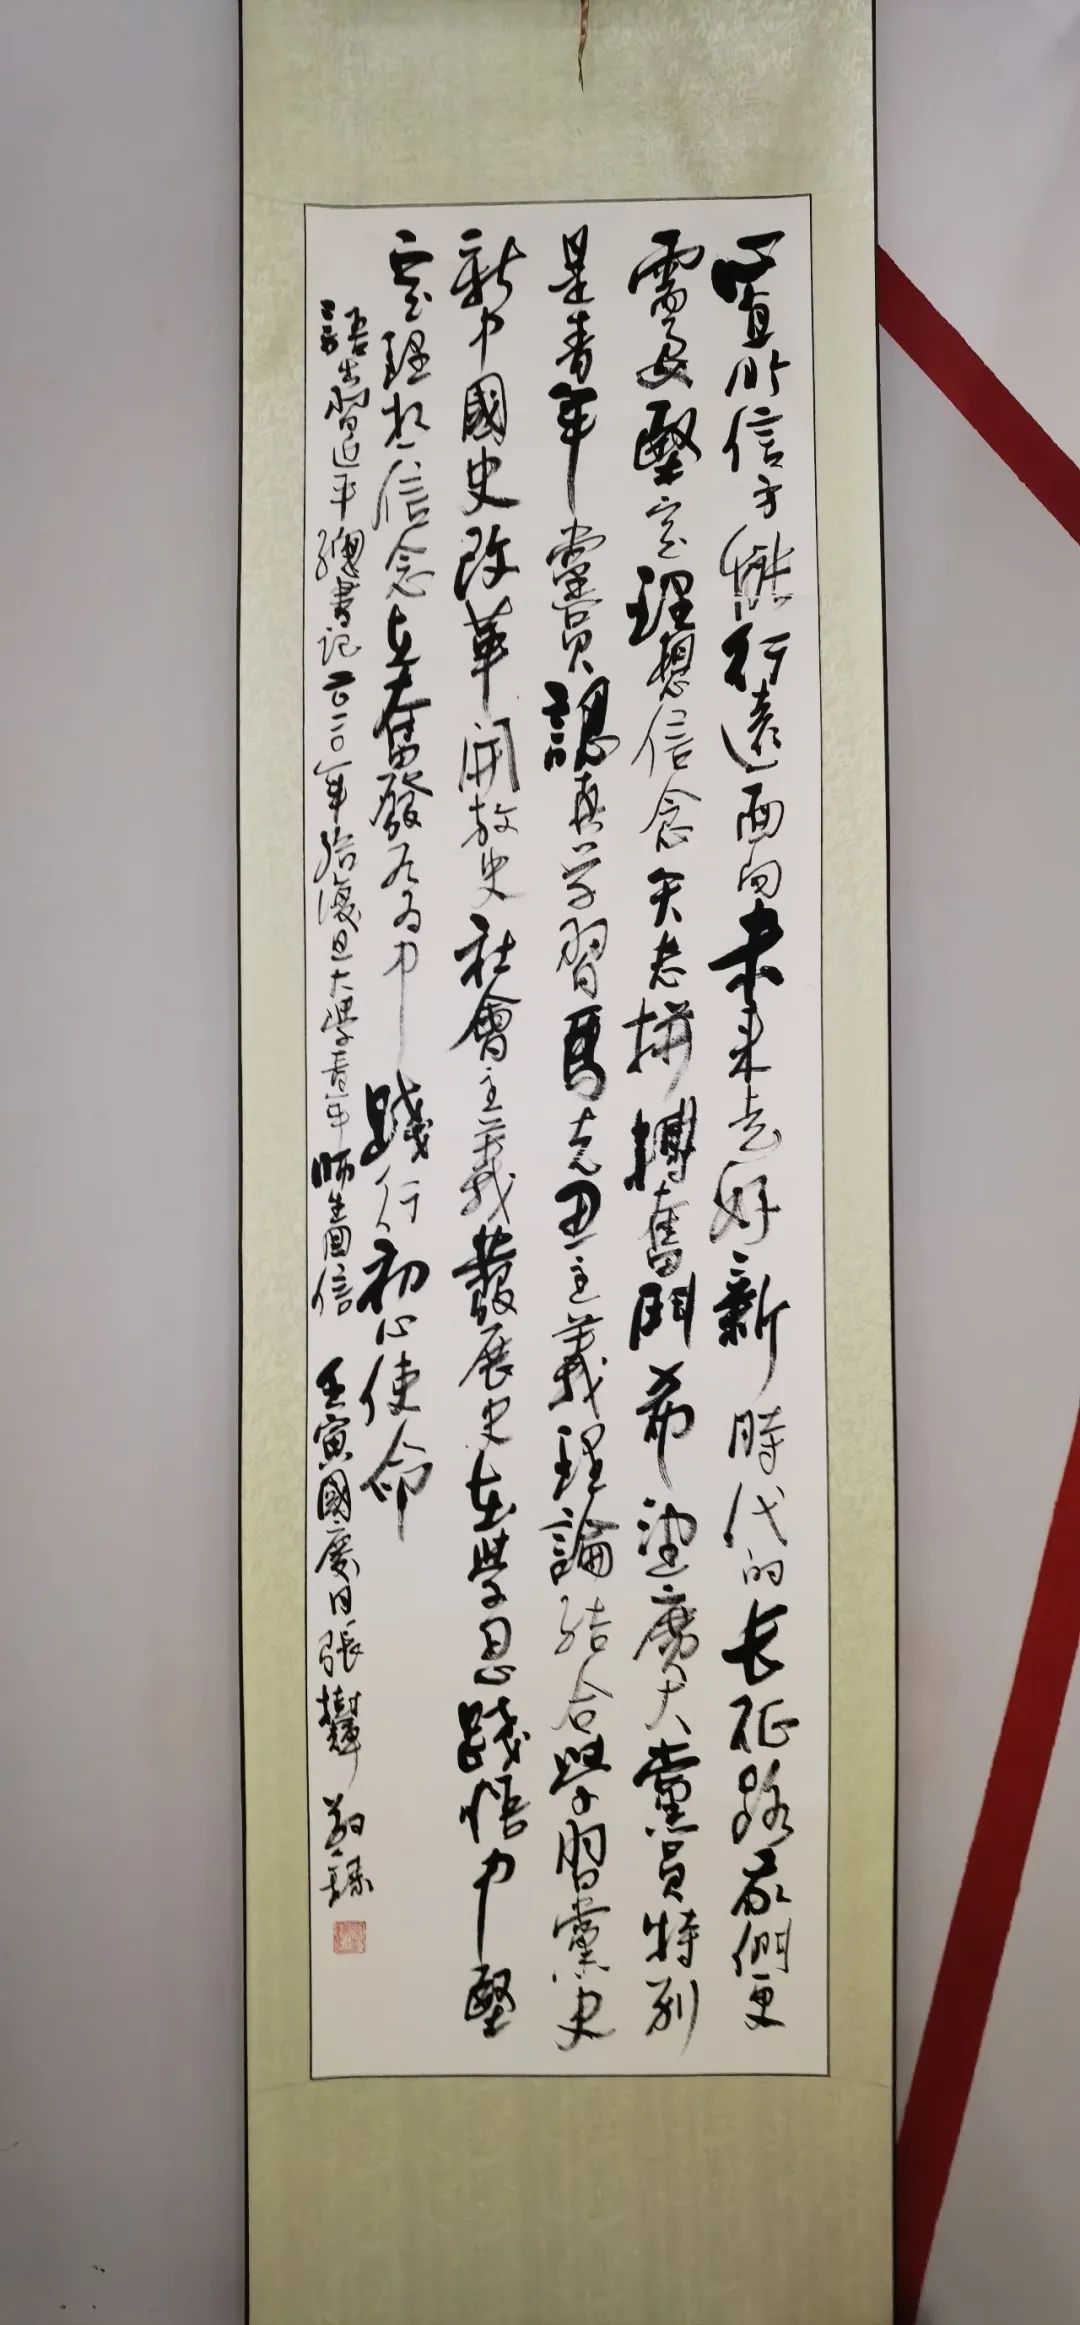 心有所信方能行遠面向未来走好新時代的长征路我們更
需要堅定理想信念矢志拼搏奮鬥希望廣大黨員特別
是青年黨員認真学習馬克思主義理論結合學習黨史
新中國史改革開放史社會主義發展史在學思踐悟中堅
定理想信念在奮發有為中踐行初心使命
語出習近平總書记二〇二〇年给復旦大學青年師生回信 壬寅國慶日張樹輝敬録